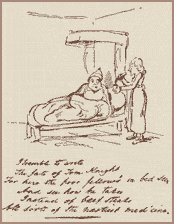 I tremble to write
The fate of Tom Knight
For here the poor fellow's in bed, Sir
And see how he takes
Instead of beef steaks
All sorts of the nastiest medicine.